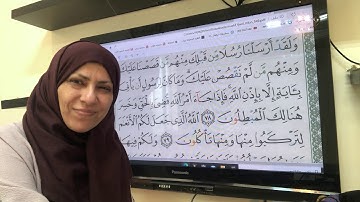 وَلَقَدْ أَرْسَلْنَا رُسُلًا مِّن قَبْلِكَ مِنْهُم مَّن قَصَصْنَا عَلَيْكَ
وَمِنْهُم مَّن لَّمْ نَقْصُصْ عَلَيْكَ وَمَا كَانَ لِرَسُولٍ أَن يَأْتِيَ
بِـَٔايَةٍ إِلَّا بِإِذْنِ ٱللَّهِ فَإِذَا جَآءَ أَمْرُ ٱللَّهِ قُضِيَ بِٱلْحَقِّ وَخَسِرَ
هُنَالِكَ ٱلْمُبْطِلُونَ ٧٨ ٱللَّهُ ٱلَّذِي جَعَلَ لَكُمُ ٱلْأَنْعَٰمَ
لِتَرْكَبُوا۟ مِنْهَا وَمِنْهَا تَأْكُلُونَ ٧٩ وَلَكُمْ فِيهَا
Panasonic